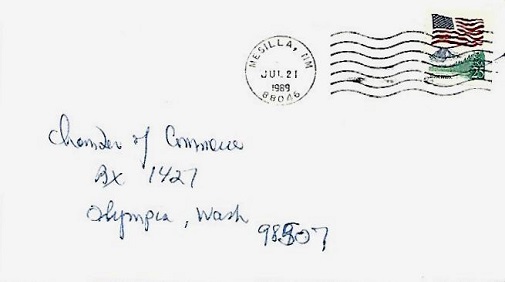 MESILLA, NM
JUL 21
1989
88046
USA
25
Chamber of Commerce
Bx 1427
Olympia, Wash
98507